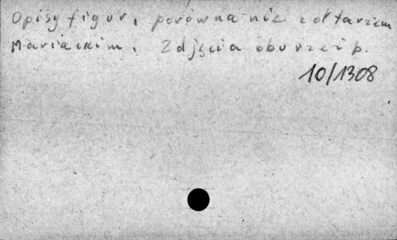 Opisy figur, porównanie z ołtarzem
Mariackim. Zdjęcia obu rzeźb.
10/1308